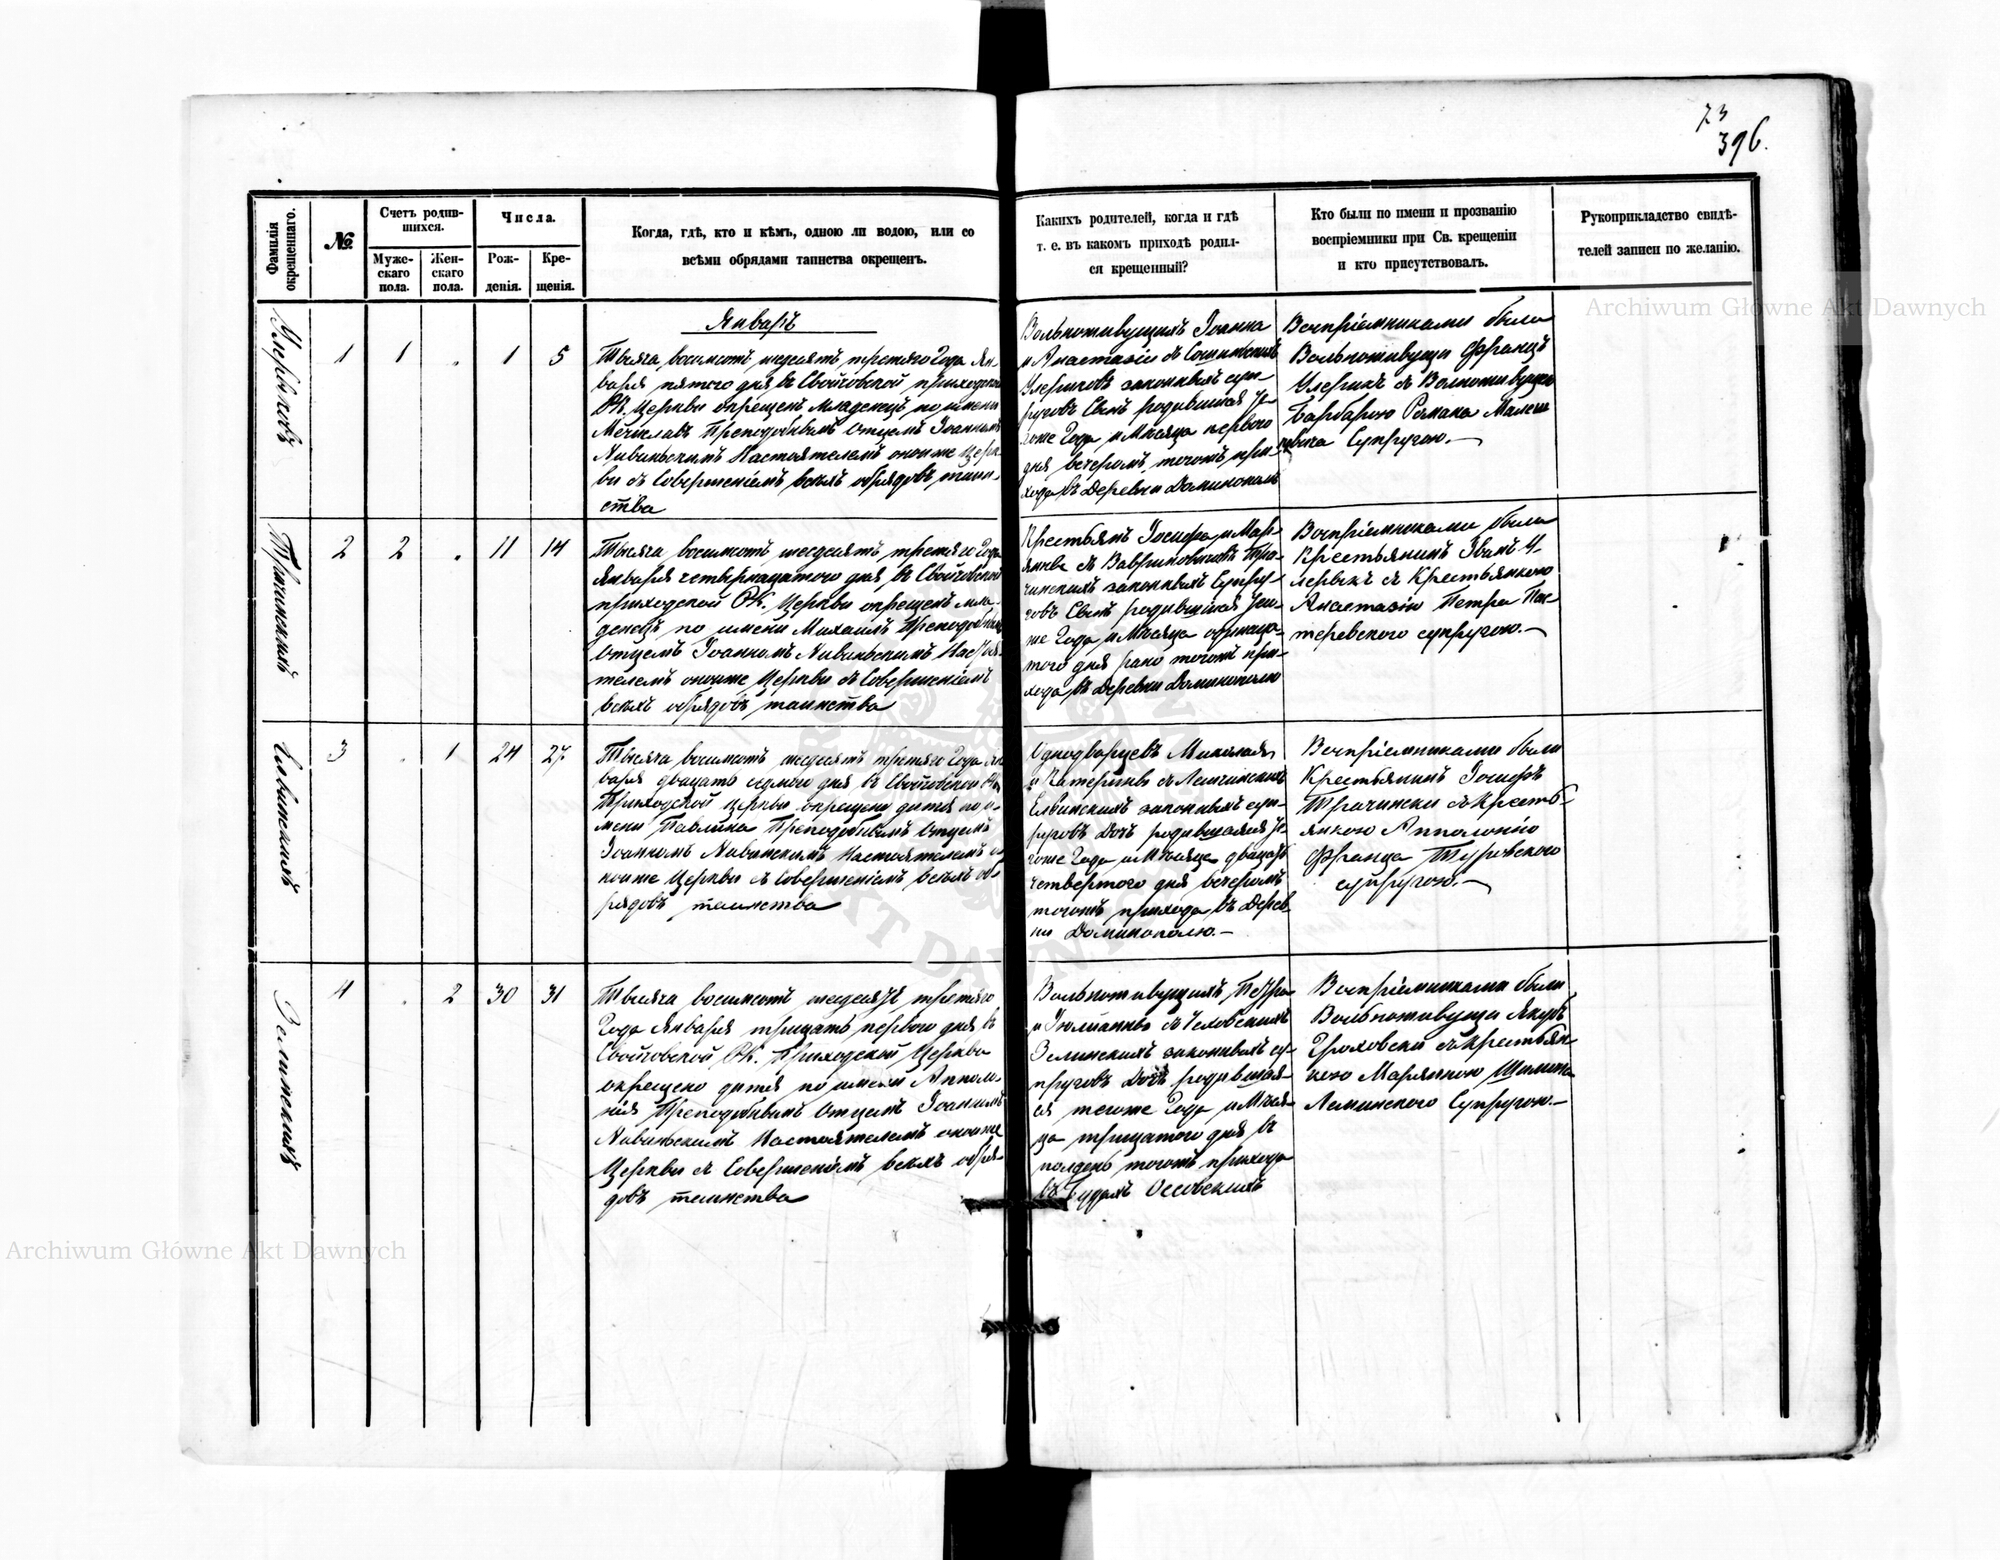 73
396.
Фамилія окрещеннаго.
№.
Счетъ родив-
шихся.
Муже-
скаго
пола.
Жен-
скаго
пола.
Числа.
Рож-
денія.
Кре-
щенія.
Когда, гдѣ, кто и кѣмъ, одною ли водою, или со
всѣми обрядами таинства окрещенъ.
Какихъ родителей, когда и гдѣ
т. е. въ какомъ приходѣ родил-
ся крещенный?
Кто были по имени и прозванію
воспріемники при Св. крещеніи
и кто присутствовалъ.
Рукоприкладство свидѣ-
телей записи по желанію.
Январь
Улериковъ
1 1 1 5
Тысяча восимсотъ шедсятъ третяго Года Ян-
варя пятого дня въ Свойчовской приходской
РК. Церкви окрещенъ младенецъ по имени
Мечиславъ Преподобнымъ Отцемъ Іоанномъ
Настоятелемъ оноиже Церк-
ви съ Совершеніемъ всѣхъ обрядовъ таин-
ства
Вольноживущихъ Іоанна
и Анастазіи съ
Улериковъ законныхъ суп-
руговъ Сынъ родившійся
тоже Года и Мѣсяца первого
дня вечеромъ, тогожъ при-
хода въ Деревни Доминополь
Воспріемниками были
Вольноживущи Францъ
Улерикъ съ Вольноживущею
Барбарою Романа
Супругою.—
Трачинскій
2 2 11 14
Тысяча восимсотъ шесдсятъ третяго Года
Января четырнацатого дня въ Свойчовской
приходской РК. Церкви окрещенъ мла-
денецъ по имени Михаилъ Преподобнымъ
Отцемъ Іоанномъ Настоя-
телемъ оноиже Церкви съ Совершеніемъ
всѣхъ обрядовъ таинства
Крестьянъ Іосифа и Мар-
янны съ Вавриковичовъ Тра-
чинскихъ законныхъ Супру-
говъ Сынъ родившійся
же Года и Мѣсяца одинаца-
того дня рано тогожъ при-
хода въ Деревни Доминополю
Воспріемниками были
Крестьянинъ Иванъ У-
лерыкъ съ Крестьянкою
Анастазіею Петра
супругою.—
Елвинскихъ
3 1 24 27
Тысяча восимсотъ шесдсятъ третяго Года Ян-
варя двацать седмого дня въ Свойчовской РК
Приходской церкви окрещено дитя по и-
мени Павлина Преподобнымъ Отцемъ
Іоанномъ Настоятелемъ о-
ноиже Церкви съ Совершеніемъ всѣхъ об-
рядовъ таинства
Однодворцевъ Миколая
и Катерины съ Лещинскихъ
Елвинскихъ законныхъ суп-
руговъ Дочь родившаяся
тоже Года и Мѣсяца двацать
четвертого дня вечеромъ
тогожъ прихода въ Дерев-
ни Доминополю.—
Воспріемниками были
Крестьянинъ Іосифъ
Трачински съ Кресть-
янкою Апполонію
Франца Туровского
супругою.—
Зелинскихъ
4 2 30 31
Тысяча восимсотъ шесдсятъ третяго
Года Января трицать первого дня въ
Свойчовской РК. Приходской Церкви
окрещено дитя по имени Апполо-
нія Преподобнымъ Отцемъ Іоанномъ
Настоятелемъ оноиже
Церкви съ Совершеніемъ всѣхъ обря-
довъ таинства
Вольноживущихъ Петра
и Юлианны съ Чеховскихъ
Зелинскихъ законныхъ су-
пруговъ Дочь родившая-
ся тогоже Года и Мѣся-
ца трицатого дня въ
полдень тогожъ прихода
въ Будахъ Осовскихъ
Воспріемниками были
Вольноживущи Якубъ
Гроховски съ Крестьян-
кою Марянною
Леминского Супругою.—
Archiwum Główne Akt Dawnych
Archiwum Główne Akt Dawnych